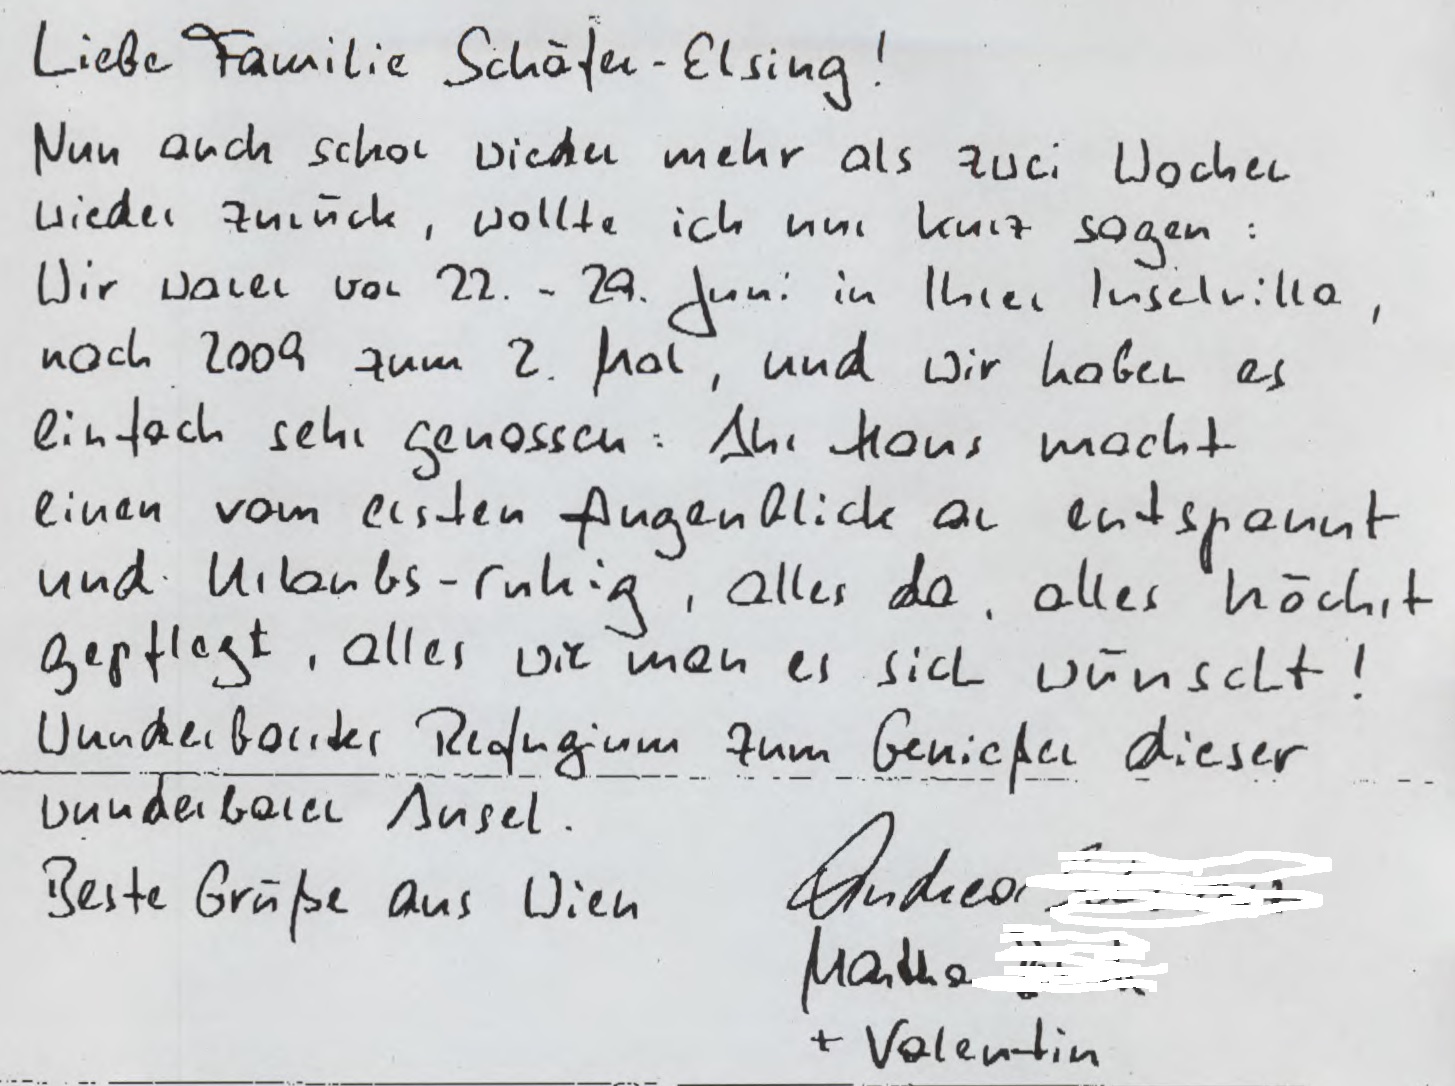 Liebe Familie Schäfer-Elsing!
Nun auch schon wieder mehr als zwei Wochen
wieder zurück, wollte ich nur kurz sagen:
Wir waren von 22. - 29. Juni in Ihrer Inselvilla,
nach 2009 zum 2. Mal, und wir haben es
einfach sehr genossen: Ihr Haus macht
einen vom ersten Augenblick an entspannt
und Urlaubs-ruhig, alles da, alles höchst
gepflegt, alles wie man es sich wünscht!
Wunderbarstes Refugium zum Genießen dieser
wunderbaren Insel.
Beste Grüße aus Wien
Andrea
Martha
+ Valentin